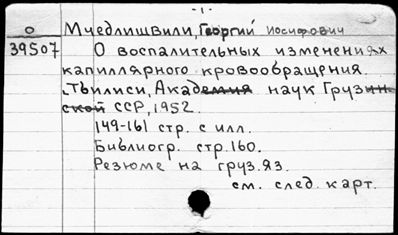 -1-
О Мчедлишвили, Георгий Иосифович
39507 О воспалительных изменениях
капиллярного кровообращения.
Тбилиси, Академия наук Грузин-
ской ССР, 1952.
149-161 стр. с илл.
Библиогр. стр. 160.
Резюме на груз. яз.
см. след. карт.